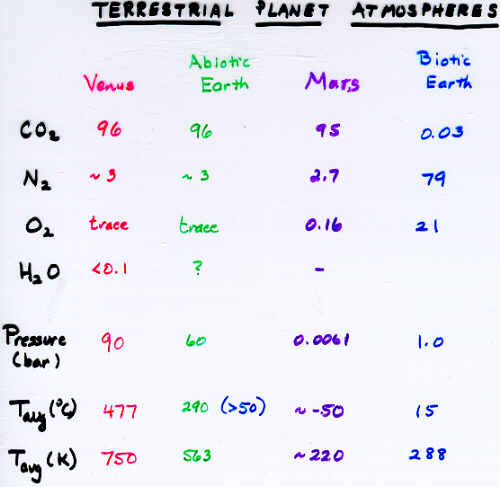 TERRESTRIAL PLANET ATMOSPHERES
Venus Abiotic Earth Mars Biotic Earth
CO₂ 96 96 95 0.03
N₂ ~3 ~3 2.7 79
O₂ trace trace 0.16 21
H₂O <0.1 ? -
Pressure (bar) 90 60 0.0061 1.0
Tavg (°C) 477 290 (>50) ~-50 15
Tavg (K) 750 563 ~220 288